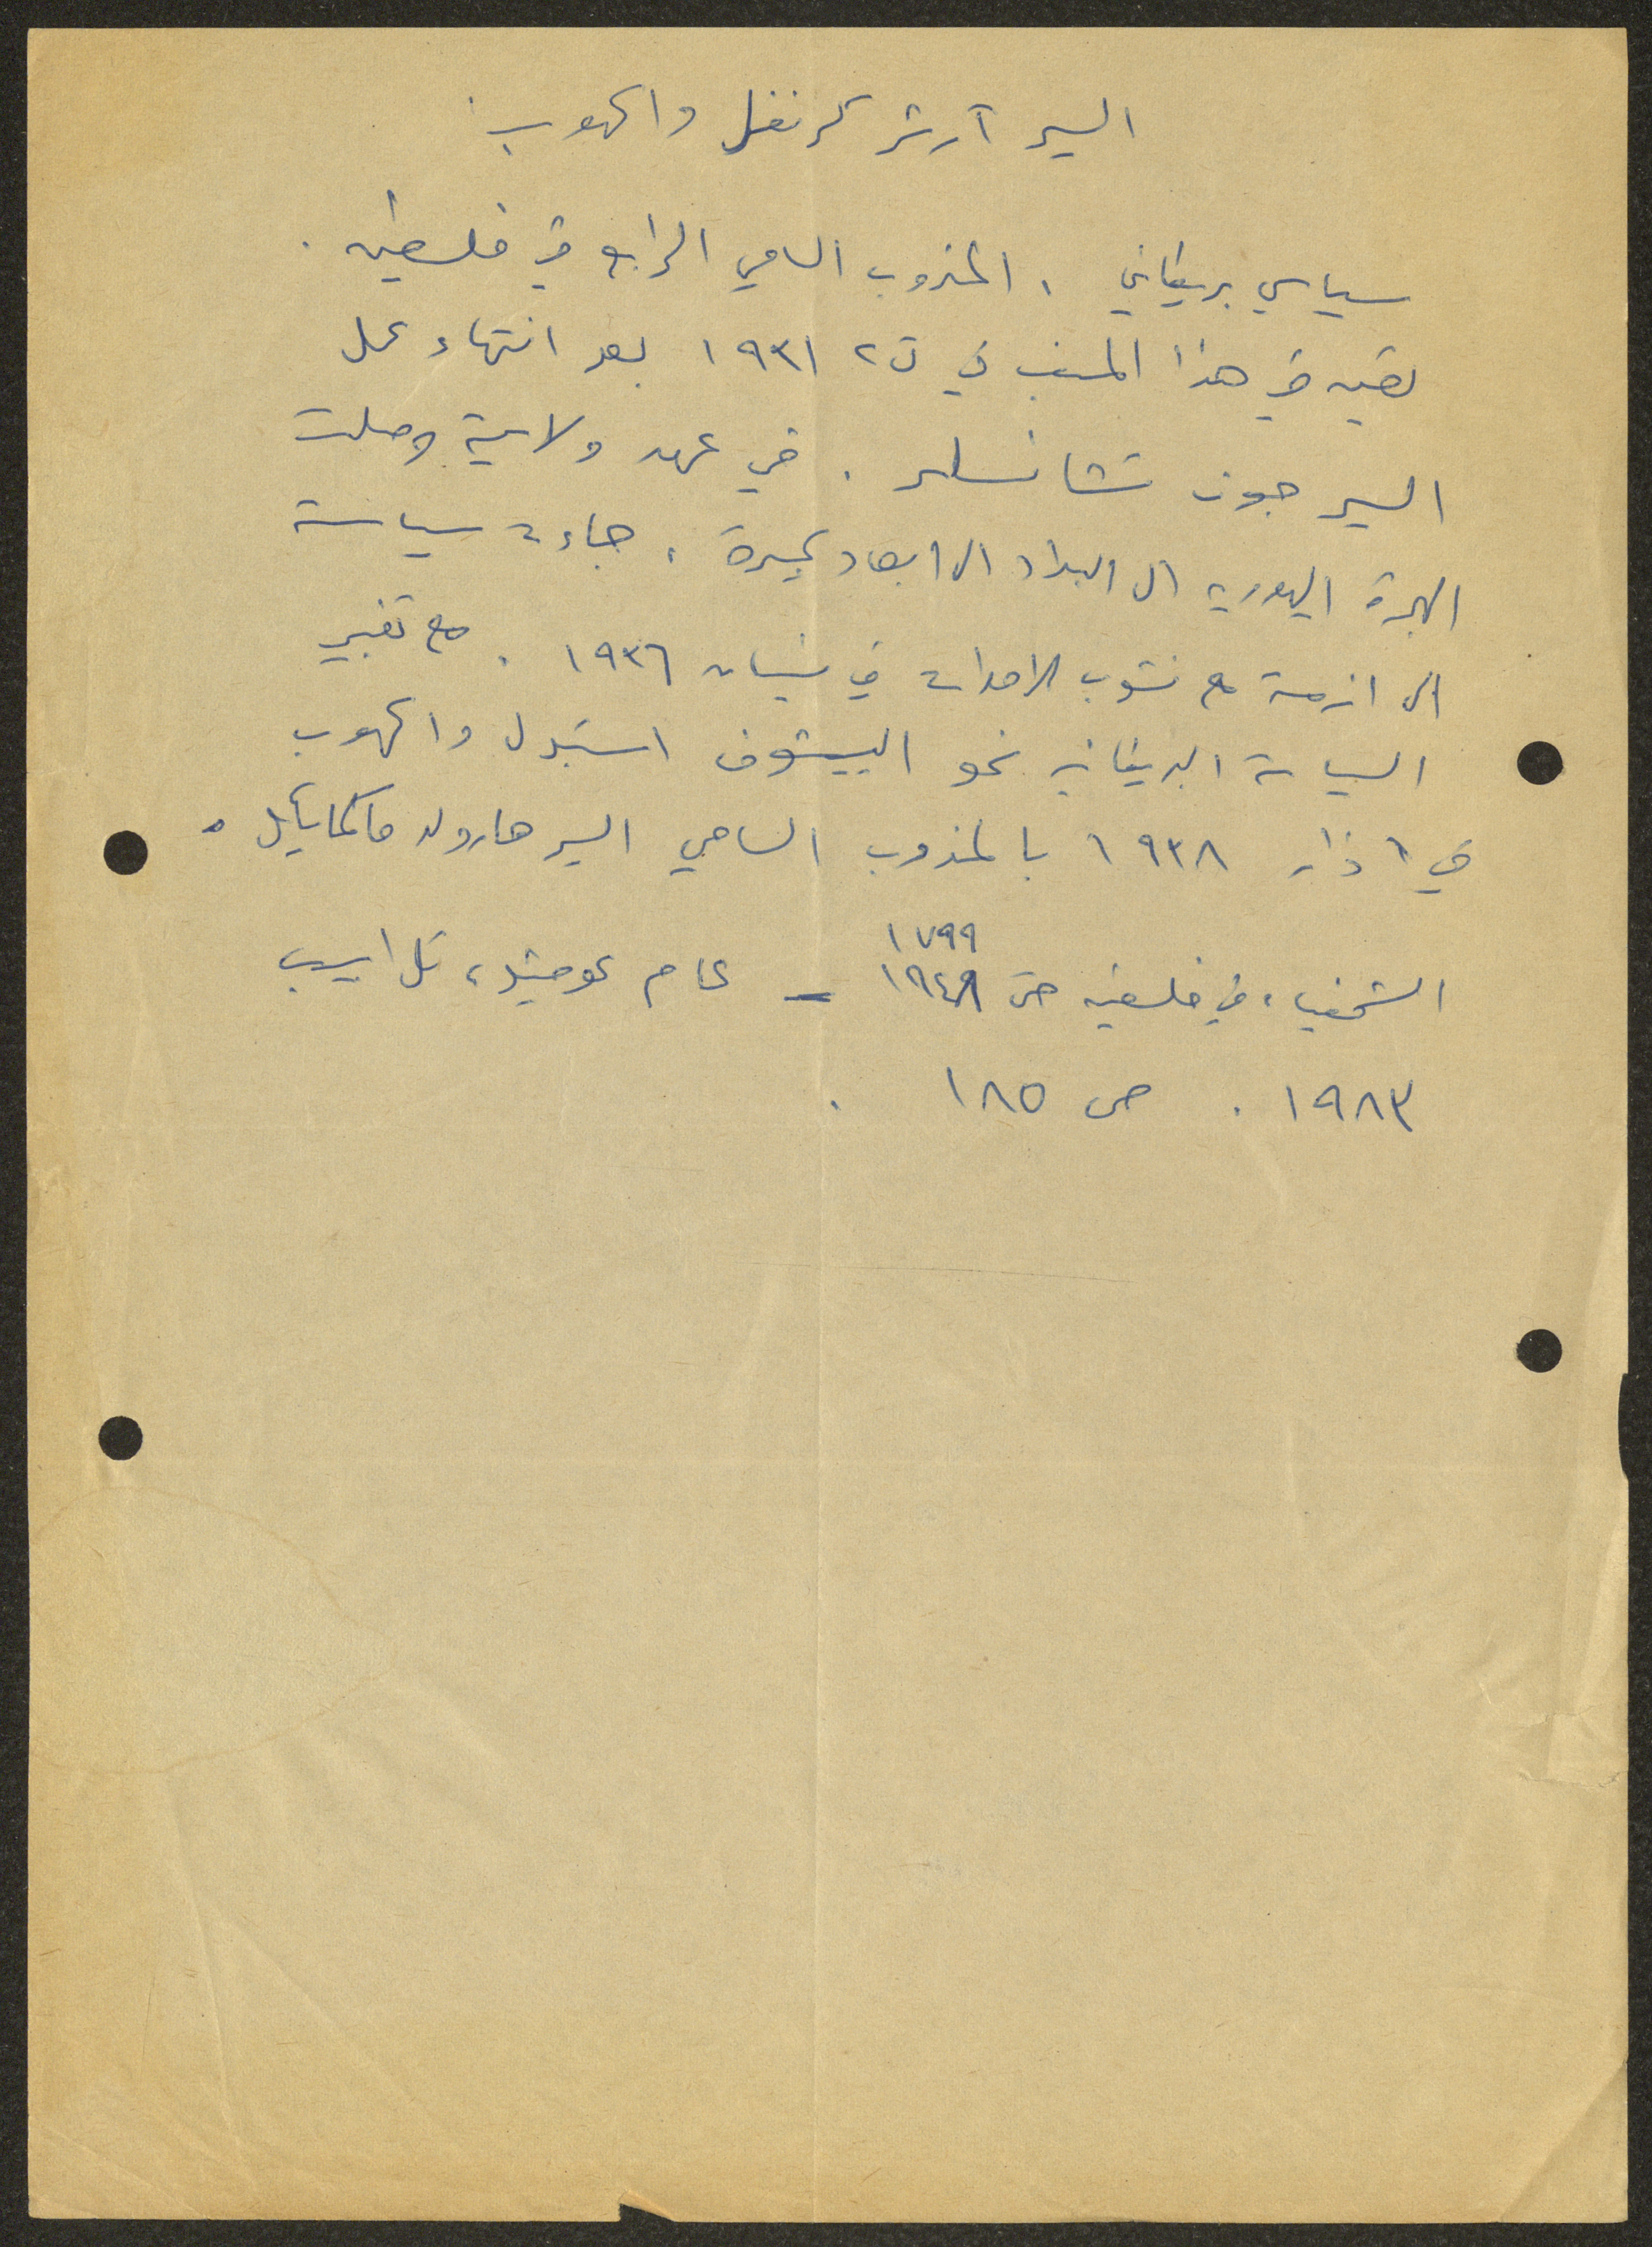 السير آرثر كرنفل واكهوب
سياسي بريطاني . المندوب السامي الرابع في فلسطين .
تعين في هذا المنصب في ت٢ ١٩٣١ بعد انتهاء عمل
السير جون تشانسلر . في عهد ولايته وصلت
الهجرة اليهودية الى البلاد الى ابعاد كبيرة . جاءت سياسة
الى ازمة مع نشوب الاحداث في نيسان ١٩٣٦ . مع تغيير
السياسة البريطانية نحو الييشوف استبدل واكهوب
في اذار ١٩٣٨ بالمندوب السامي السير هارولد ماكمايكل .
١٧٩٩
الشخصيات في فلسطين حتى ١٩٤٨ - عام عوفيد، تل ابيب
١٩٨٣ . ص ١٨٥ .